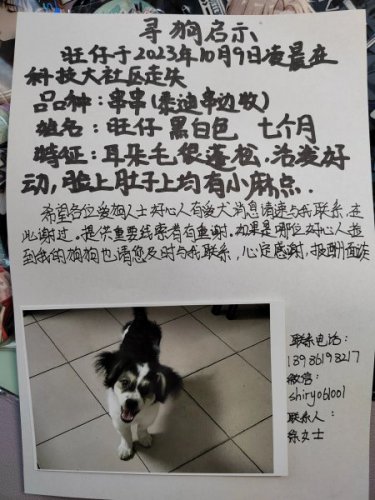 寻狗启示
旺仔于2023年10月9日凌晨在
科技大社区走失
品品种：串串(柔迪串边牧)
姓名：旺仔 黑白包 七个月
特征：耳朵毛很蓬松.活泼好
动，脸上肚子上均有小麻点.
希望各位爱狗人士好心人有爱犬消息请速与我联系,在
此谢过。提供重要线索者有重谢。如果是哪位好心人捡
到我的狗狗也请您及时与我联系,心定感谢,报酬面谈
联系电话:
13986198217
微信:
shiryo61001
联系人:
徐女士